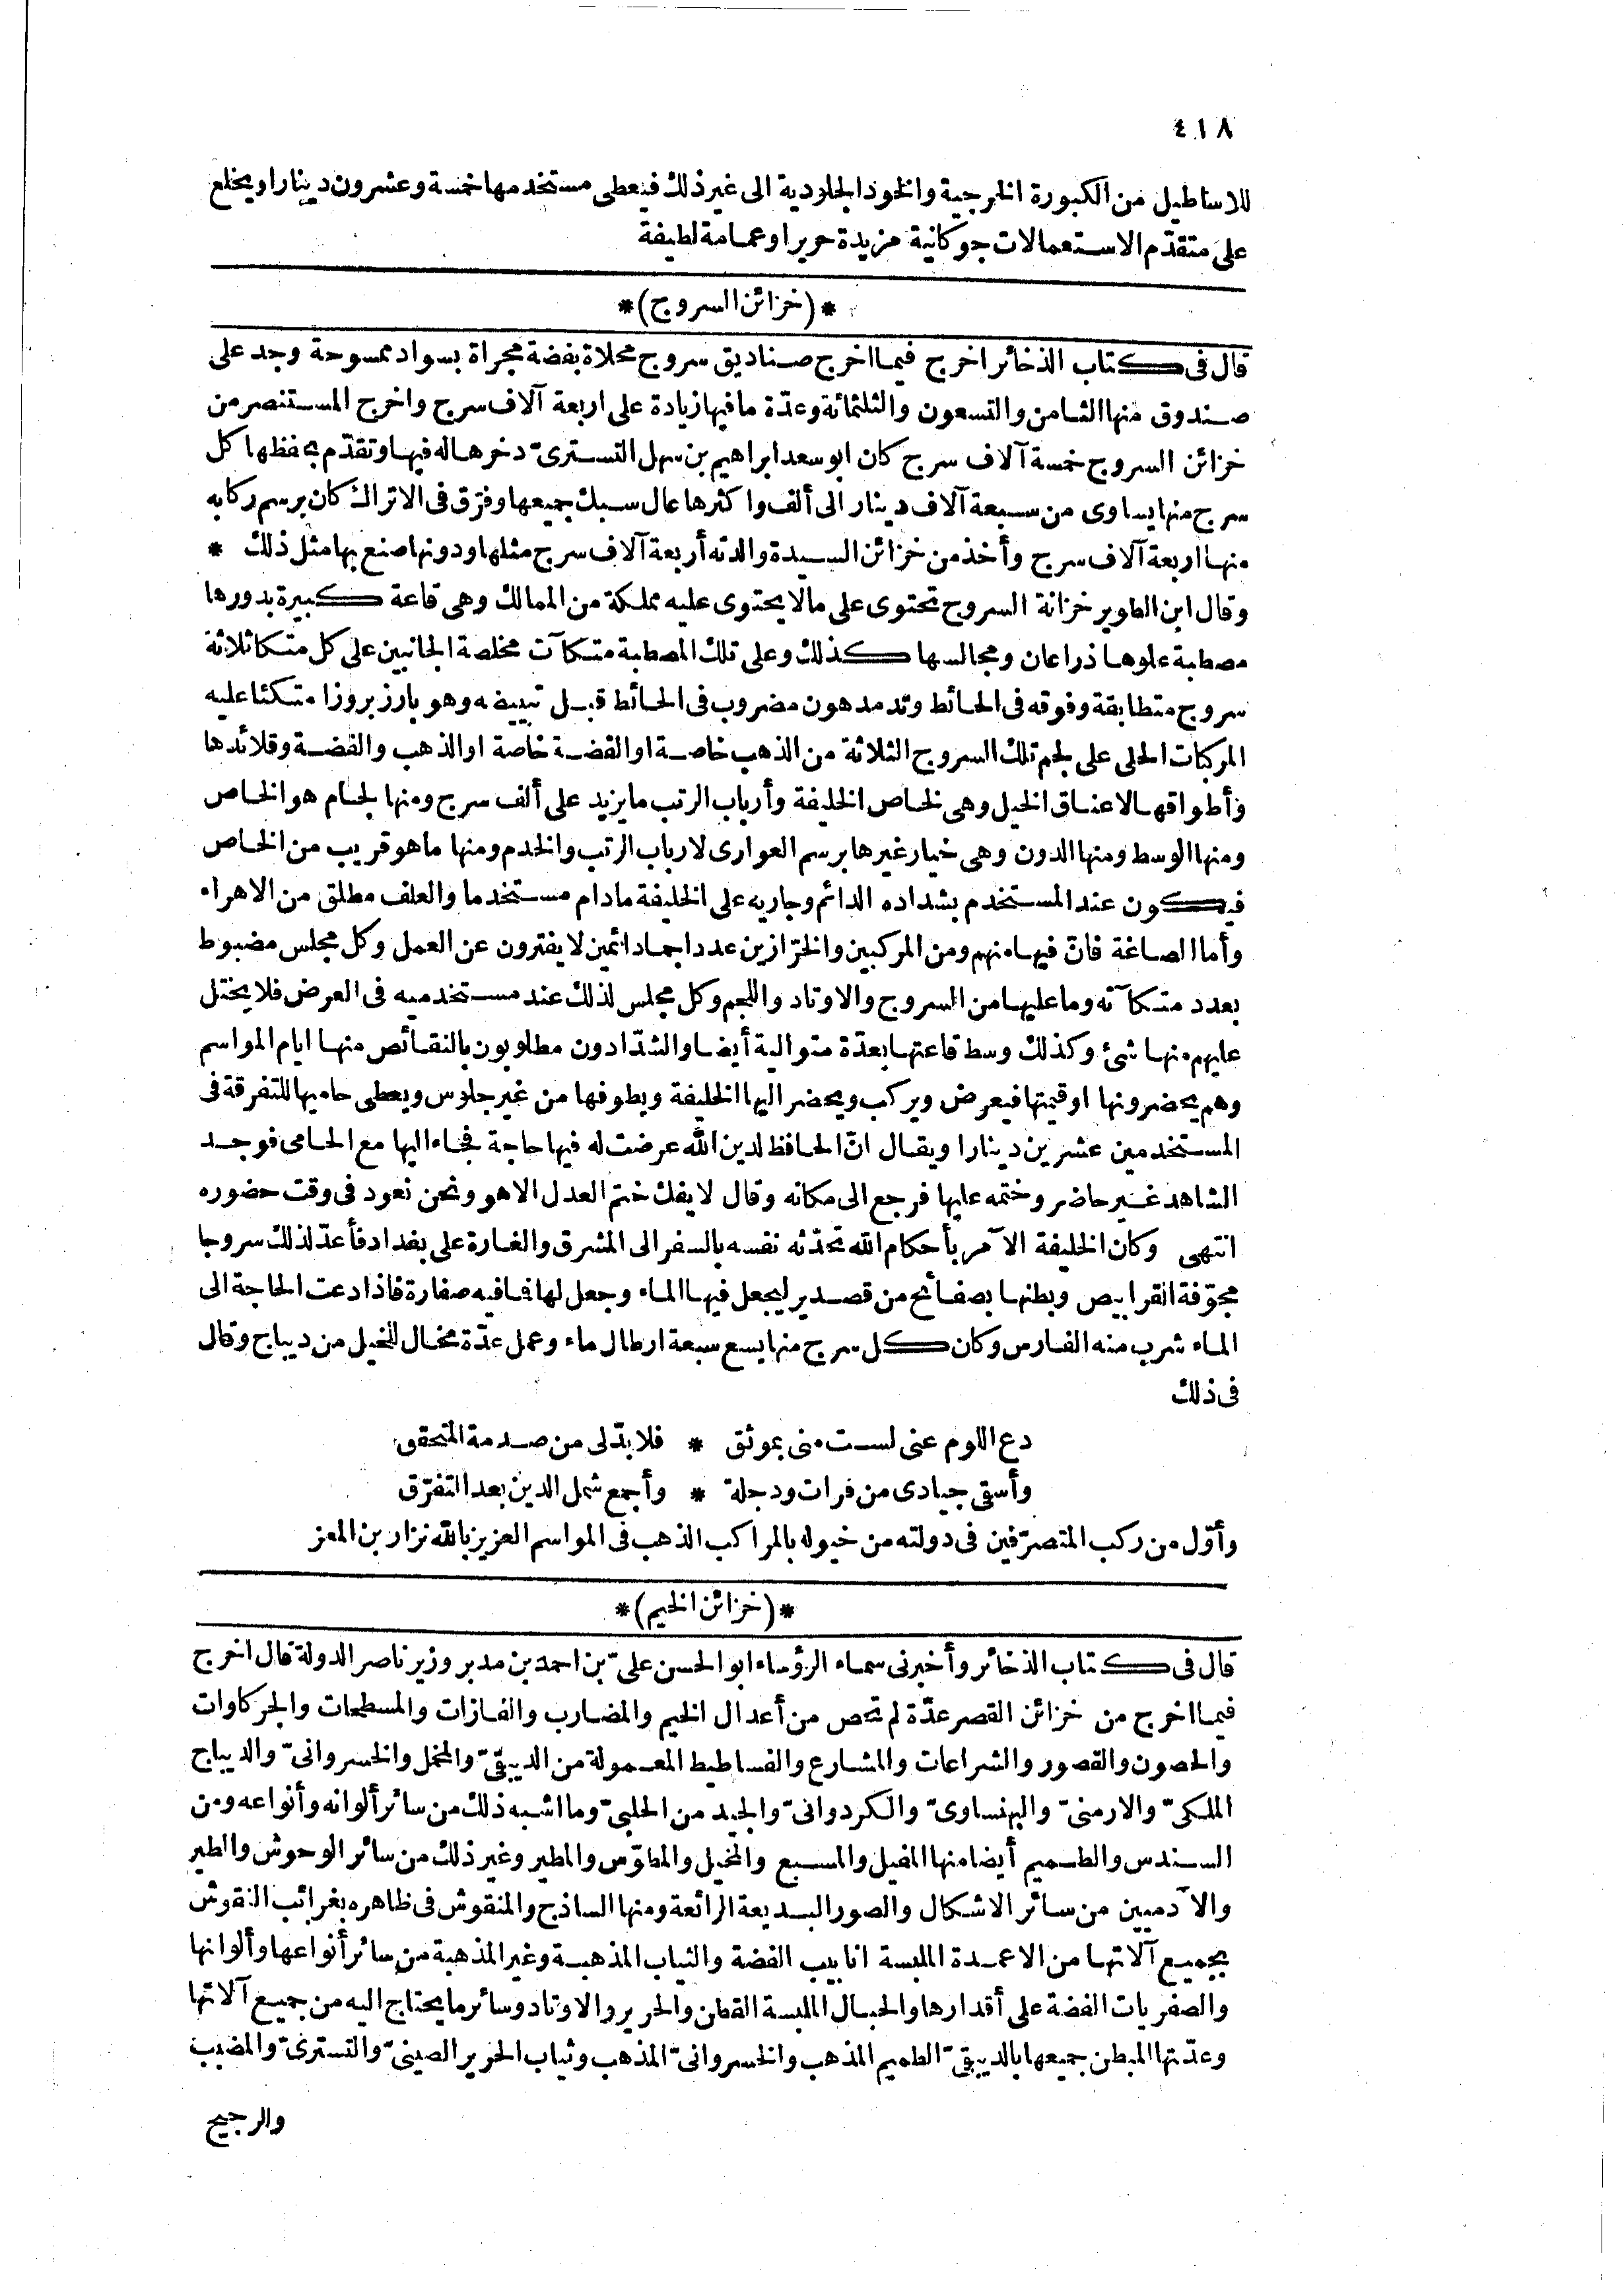 ٤١٨
للاساطيل من الكبورة الخرجية والخوذ الجلودية الى غير ذلك فيعطى مستخدمها خمسة وعشرون دينارا ويخلع
على متقدّم الاستعمالات جوكانية مزيدة حريرا وعمامة لطيفة
*(خزائن السروج)*
قال فى كتاب الذخائر اخرج فيما اخرج صناديق سروج محلاة بفضة مجراة بسواد ممسوحة وجد على
صندوق منها الثامن والتسعون والثلثمائة وعدّة ما فيها زيادة على اربعة آلاف سرج واخرج المستنصر من
خزائن السروج خمسة آلاف سرج كان ابو سعد ابراهيم بن سهل التسترىّ دخرها له فيها وتقدّم بحفظها كل
سرج منها يساوى من سبعة آلاف دينار الى ألف واكثرها عال سبك جميعها وفرّق فى الاتراك كان برسم ركابه
منها اربعة آلاف سرج وأخذ من خزائن السيدة والدته أربعة آلاف سرج مثلها ودونها صنع بها مثل ذلك *
وقال ابن الطوير خزانة السروج تحتوى على ما لا يحتوى عليه مملكة من الممالك وهى قاعة كبيرة بدورها
مصطبة علوها ذراعان ومجالسها كذلك وعلى تلك المصطبة متكآت مخلصة الجانبين على كل متكا ثلاثة
سروج متطابقة وفوقه فى الحائط وتد مدهون مضروب فى الحائط قبل تبييضه وهو بارز بروزا متكئا عليه
المركبات الحلى على لجم تلك السروج الثلاثة من الذهب خاصة او الفضة خاصة او الذهب والفضة وقلائدها
وأطواقها لاعناق الخيل وهى لخاص الخليفة وأرباب الرتب ما يزيد على ألف سرج ومنها لجام هو الخاص
ومنها الوسط ومنها الدون وهى خيار غيرها برسم العوارى لارباب الرتب والخدم ومنها ما هو قريب من الخاص
فيكون عند المستخدم بشداده الدائم وجاريه على الخليفة مادام مستخدما والعلف مطلق من الاهراء
وأما الصاغة فانّ فيها منهم ومن المركبين والخرّازين عددا جما دائمين لا يفترون عن العمل وكل مجلس مضبوط
بعدد متكآته وما عليها من السروج والاوتاد واللجم وكل مجلس لذلك عند مستخدميه فى العرض فلا يختل
عليهم منها شئ وكذلك وسط قاعتها بعدّة متوالية أيضا والشدّادون مطلوبون بالنقائص منها ايام المواسم
وهم يحضرونها او قيمتها فيعرض ويركب ويحضر اليها الخليفة ويطوفها من غير جلوس ويعطى حاميها للتفرقة فى
المستخدمين عشرين دينارا ويقال انّ الحافظ لدين الله عرضت له فيها حاجة فجاء اليها مع الحامى فوجد
الشاهد غير حاضر وختمه عليها فرجع الى مكانه وقال لا يفك ختم العدل الا هو ونحن نعود فى وقت حضوره
انتهى وكان الخليفة الآمر بأحكام الله تحدّثه نفسه بالسفر الى المشرق والغارة على بغداد فأعدّ لذلك سروجا
مجوّفة القرابيص وبطنها بصفائح من قصدير ليجعل فيها الماء وجعل لها فما فيه صفارة فاذا دعت الحاجة الى
الماء شرب منه الفارس وكان كل سرج منها يسع سبعة ارطال ماء وعمل عدّة مخال للخيل من ديباج وقال
فى ذلك
دع اللوم عنى لست منى بموثق * فلا بدّ لى من صدمة المتحقق
وأسقى جيادى من فرات ودجلة * وأجمع شمل الدين بعد التفرّق
وأوّل من ركب المتصرّفين فى دولته من خيوله بالمراكب الذهب فى المواسم العزيز بالله نزار بن المعز
*(خزائن الخيم)*
قال فى كتاب الذخائر وأخبرنى سماء الرؤساء ابو الحسن علىّ بن احمد بن مدبر وزير ناصر الدولة قال اخرج
فيما اخرج من خزائن القصر عدّة لم تحص من أعدال الخيم والمضارب والفازات والمسطحات والجركاوات
والحصون والقصور والشراعات والمشارع والفساطيط المعمولة من الدبيقىّ والمخمل والخسروانىّ والديباج
الملكىّ والارمنىّ والبهنساوىّ والكردوانىّ والجيد من الحلبىّ وما اشبه ذلك من سائر ألوانه وأنواعه ومن
السندس والطميم أيضا منها المفيل والمسبع والمخيل والمطوّس والمطير وغير ذلك من سائر الوحوش والطير
والآدميين من سائر الاشكال والصور البديعة الرائعة ومنها الساذج والمنقوش فى ظاهره بغرائب النقوش
بجميع آلاتها من الاعمدة الملبسة انابيب الفضة والثياب المذهبة وغير المذهبة من سائر أنواعها وألوانها
والصفريات الفضة على أقدارها والحبال الملبسة القطن والحرير والاوتاد وسائر ما يحتاج اليه من جميع آلاتها
وعدّتها المبطن جميعها بالدبيقىّ الطميم المذهب والخسروانىّ المذهب وثياب الحرير الصينىّ والتسترىّ والمضبب
والرجيح